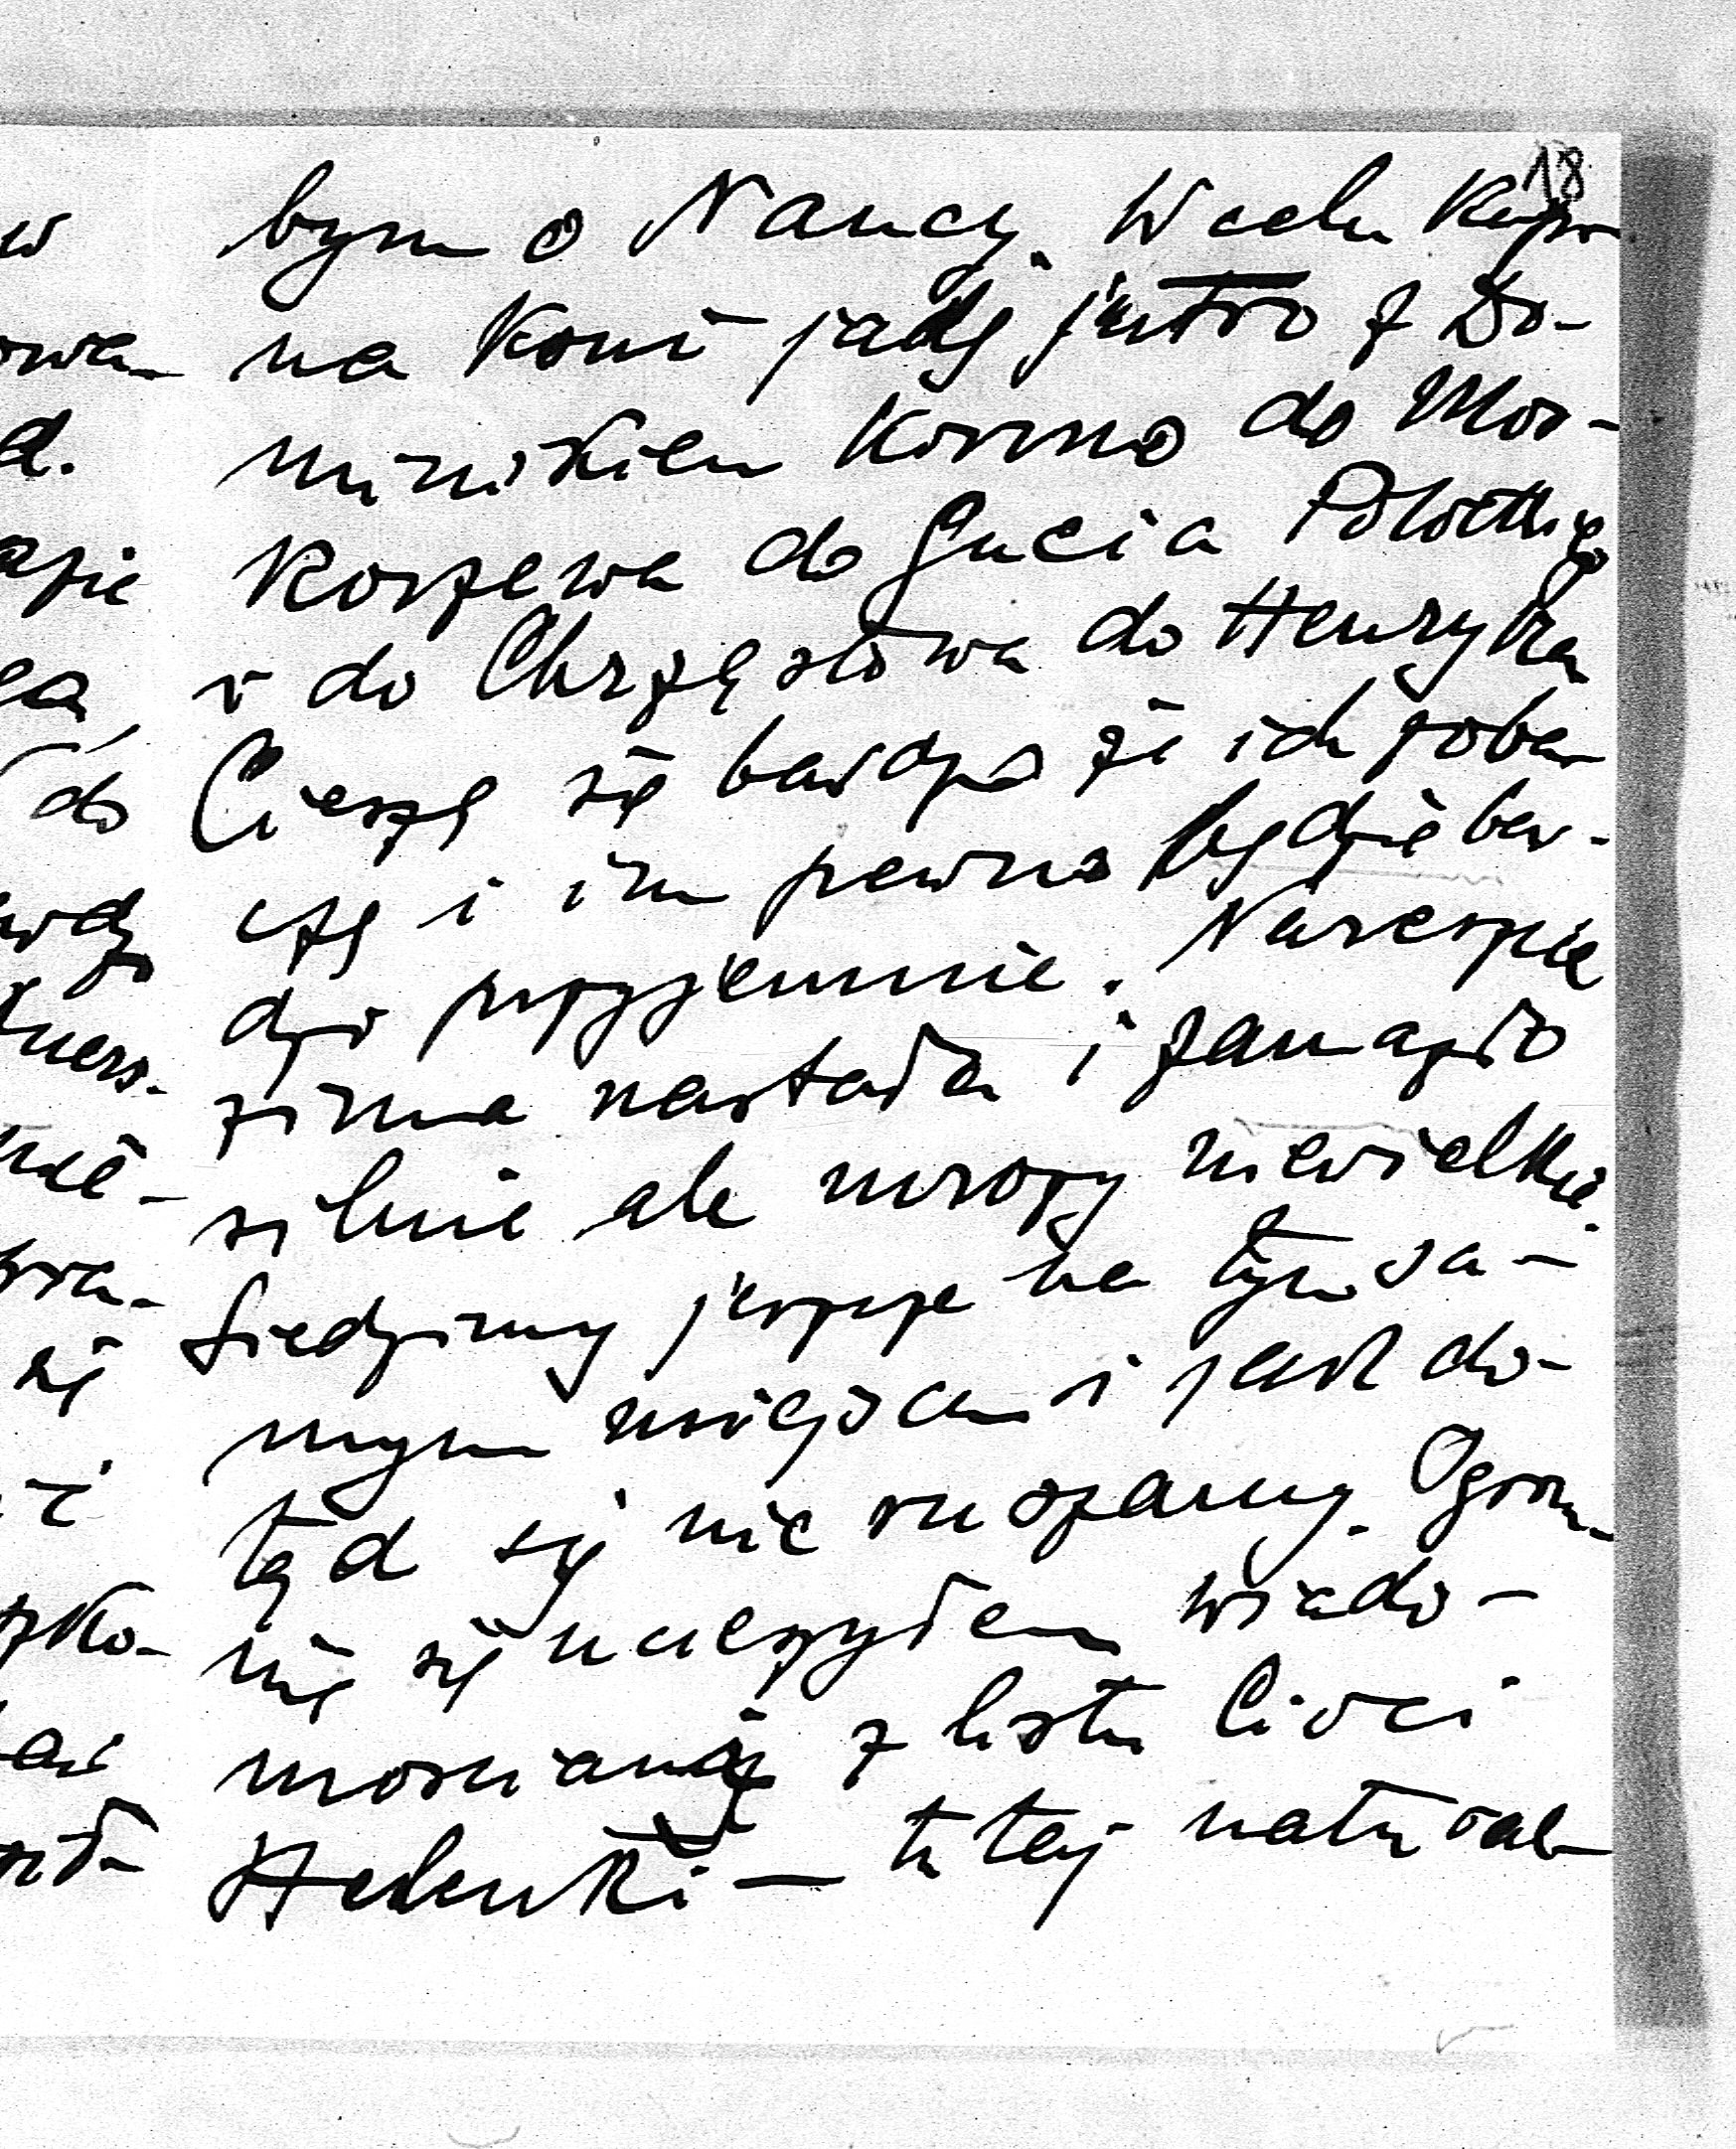 18
bym o Nancy. W celu kup-
na koni jadę jutro z Do-
minikiem Korwno do Mos-
korzewa do Gucia Potockiego
i do Chrząstowa do Henryka
Cieszę się bardzo że ich zoba-
czę i im pewno będzie bar-
dzo przyjemnie. Nareszcie
zima nastała i zamarzło
silnie ale mrozy niewielkie.
Siedzimy jeszcze na tym sa-
mym miejscu i jest do-
tąd się nie ruszamy. Ogrom-
nię się ucieszyłem wiado-
mościami z listu Cioci
Helenki — tutaj natural-
w
owa-
d.
do
się